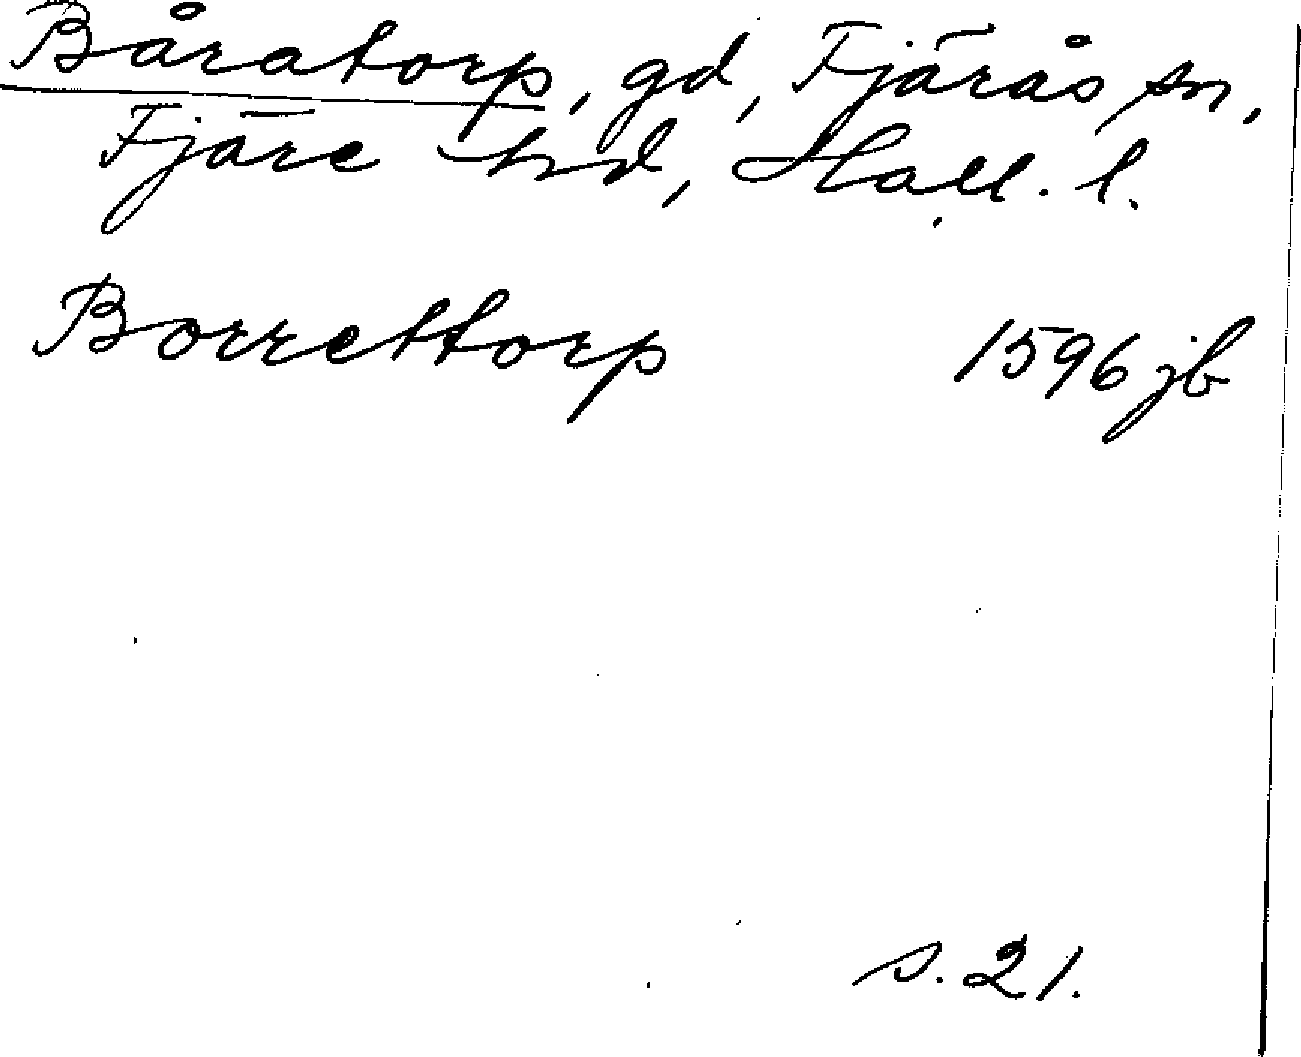 Båratorp, gd, Fjärås sn,
Fjäre hd, Hall. l.
Borrettorp 1596 jb
s. 21.